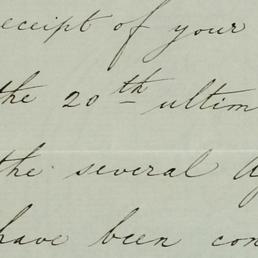 eceipt of your
the 20th ultim
the several A
have been con